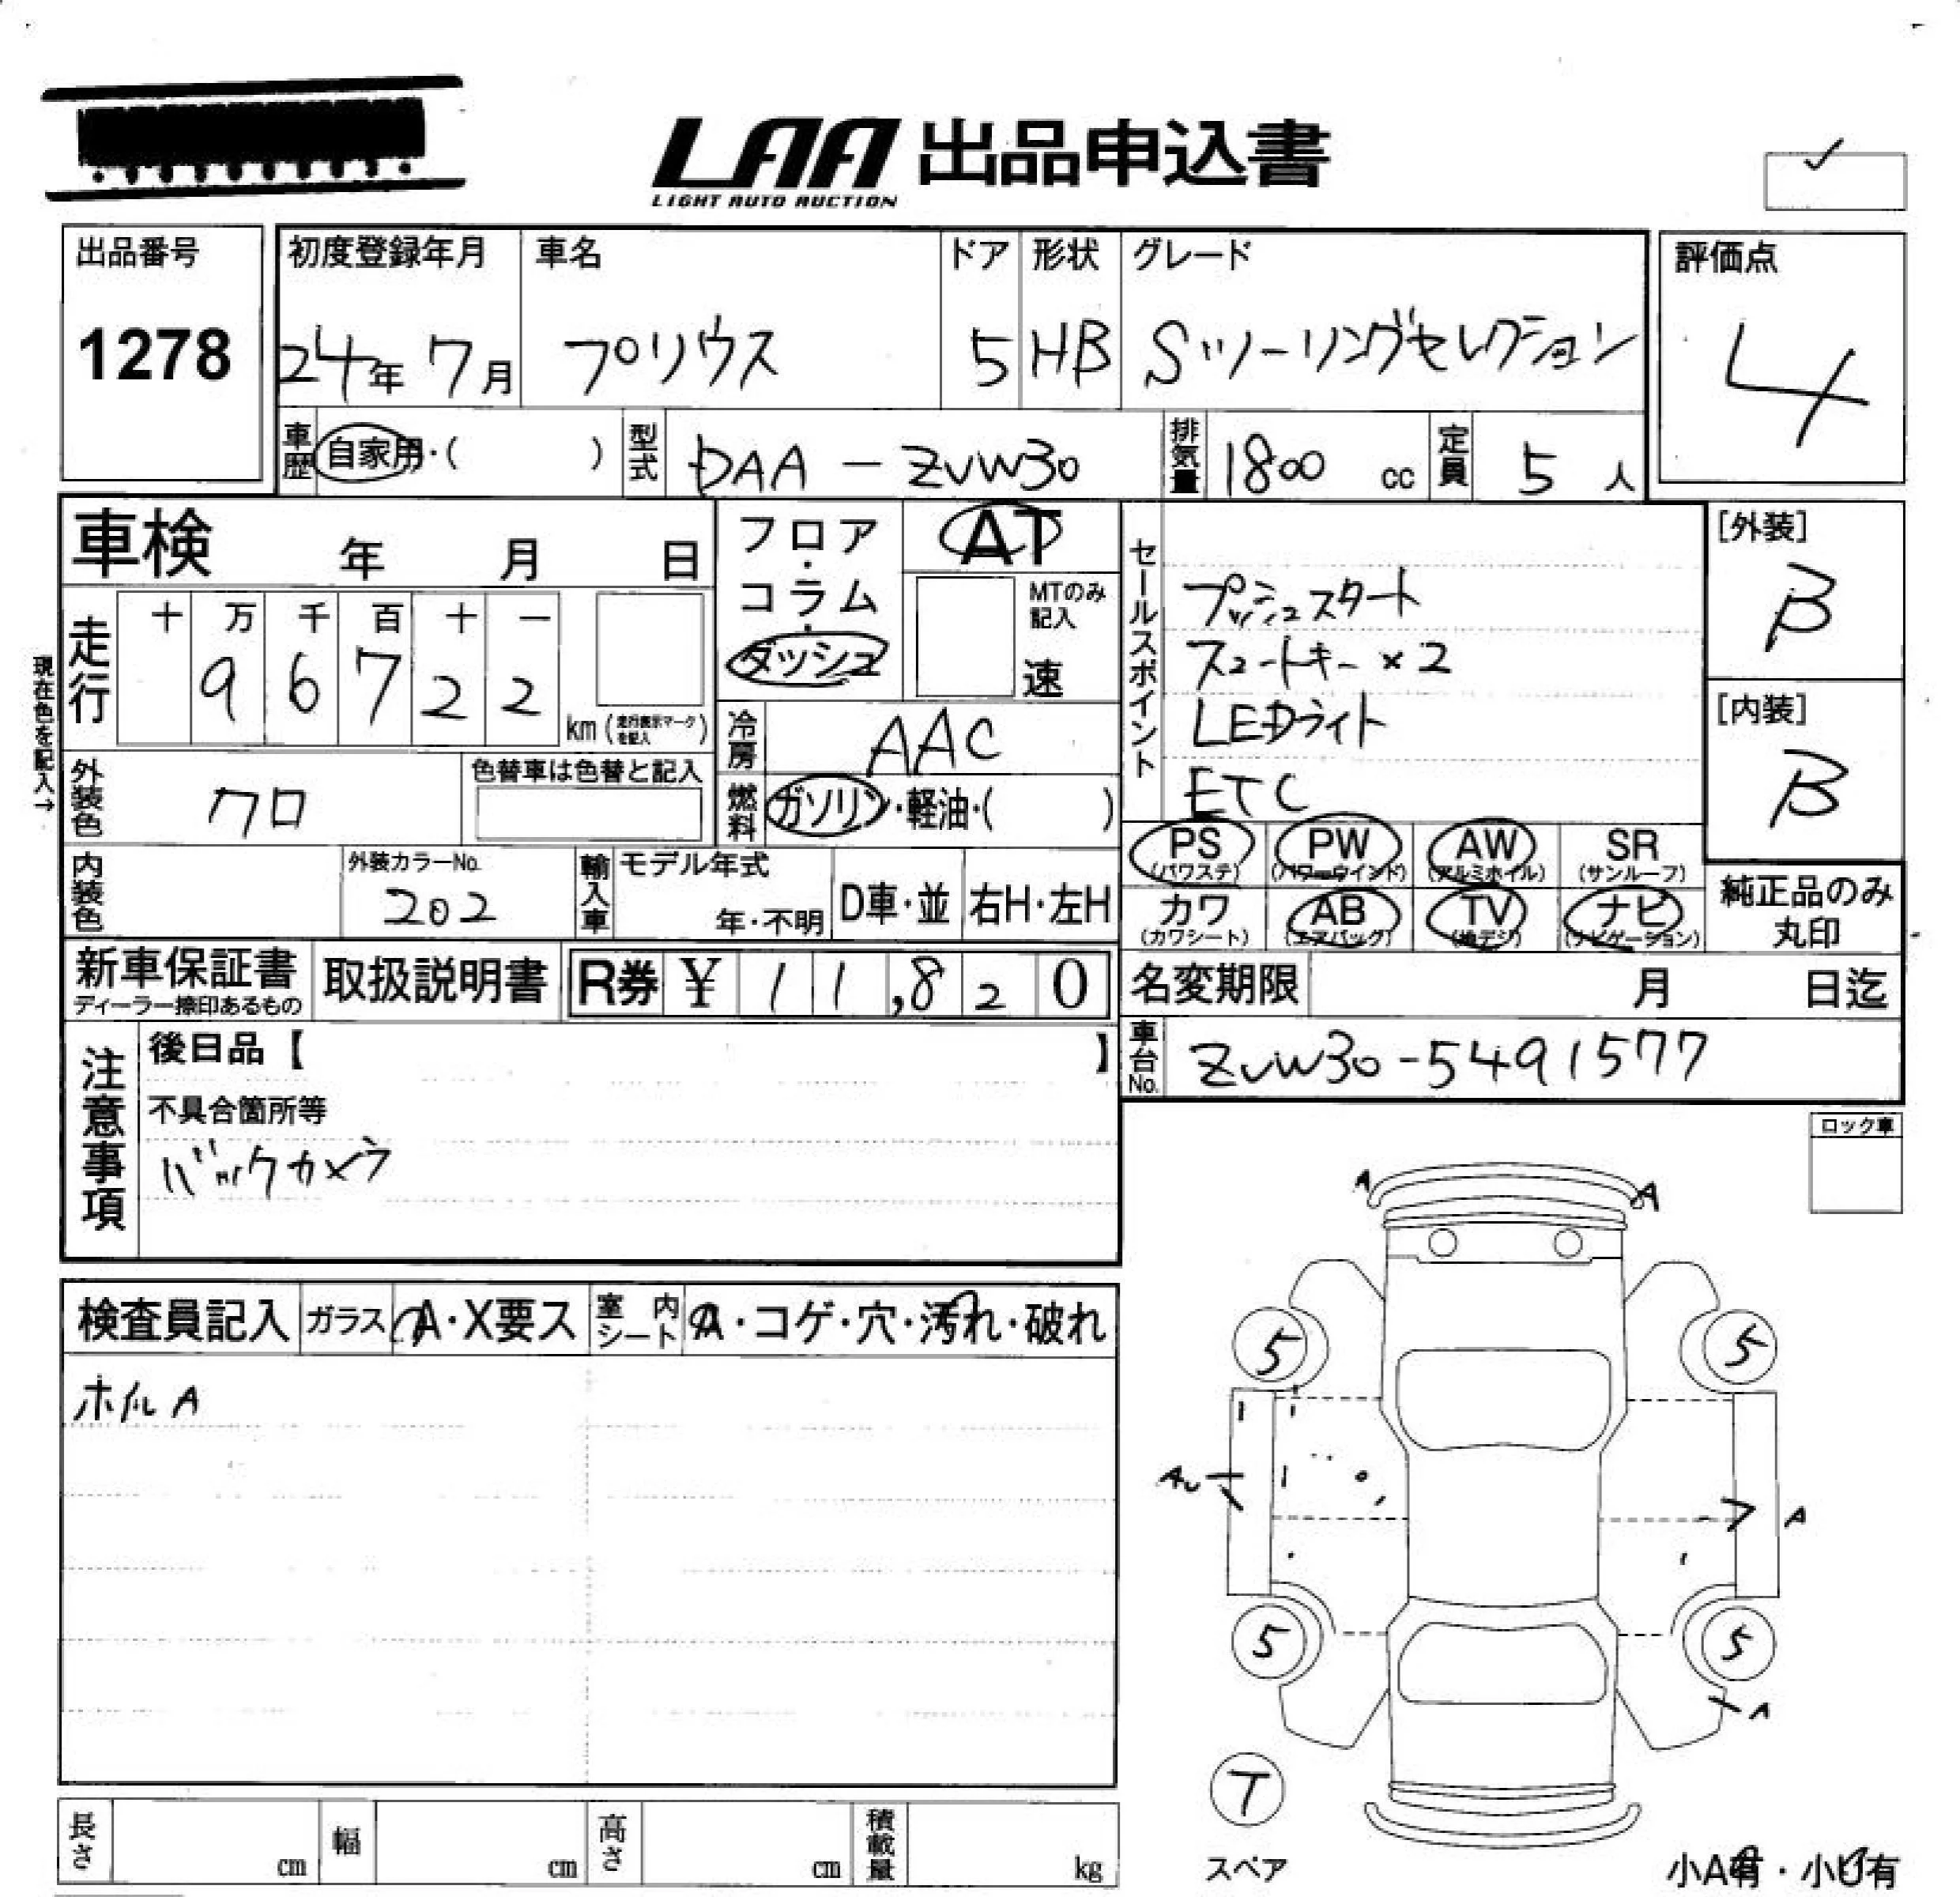 LAA 出品申込書
LIGHT AUTO AUCTION
出品番号
1278
初度登録年月
24年 7月
車名
プリウス
ドア
5
形状
HB
グレード
Sツーリングセレクション
評価点
4
車歴 自家用・( )
型式 DAA-ZVW30
排気量 1800 cc
定員 5 人
車検 年 月 日
フロア・コラム・ダッシュ
AT
MTのみ記入
速
現在色を記入→
走行 十 万 千 百 十 一
9 6 7 2 2
km (走行表示マークを記入)
冷房 AAC
燃料 ガソリン・軽油・( )
外装色 クロ
色替車は色替と記入
内装色
外装カラーNo.
202
輸入車 モデル年式
年・不明
D車・並
右H・左H
セールスポイント
プッシュスタート
スマートキー×2
LEDライト
ETC
[外装]
B
[内装]
B
PS (パワステ)
PW (パワーウインド)
AW (アルミホイル)
SR (サンルーフ)
カワ (カワシート)
AB (エアバッグ)
TV (地デジ)
ナビ (ナビゲーション)
純正品のみ
丸印
新車保証書
ディーラー捺印あるもの
取扱説明書
R券 ¥ 11,820
名変期限 月 日迄
車台No. ZVW30-5491577
注意事項
後日品【 】
不具合箇所等
バックカメラ
ロック車
検査員記入 ガラス A・X要ス 室内シート A・コゲ・穴・汚れ・破れ
ホイルA
A A
5 5
A
5 5
A
T
スペア
小A有・小U有
長さ cm
幅 cm
高さ cm
積載量 kg